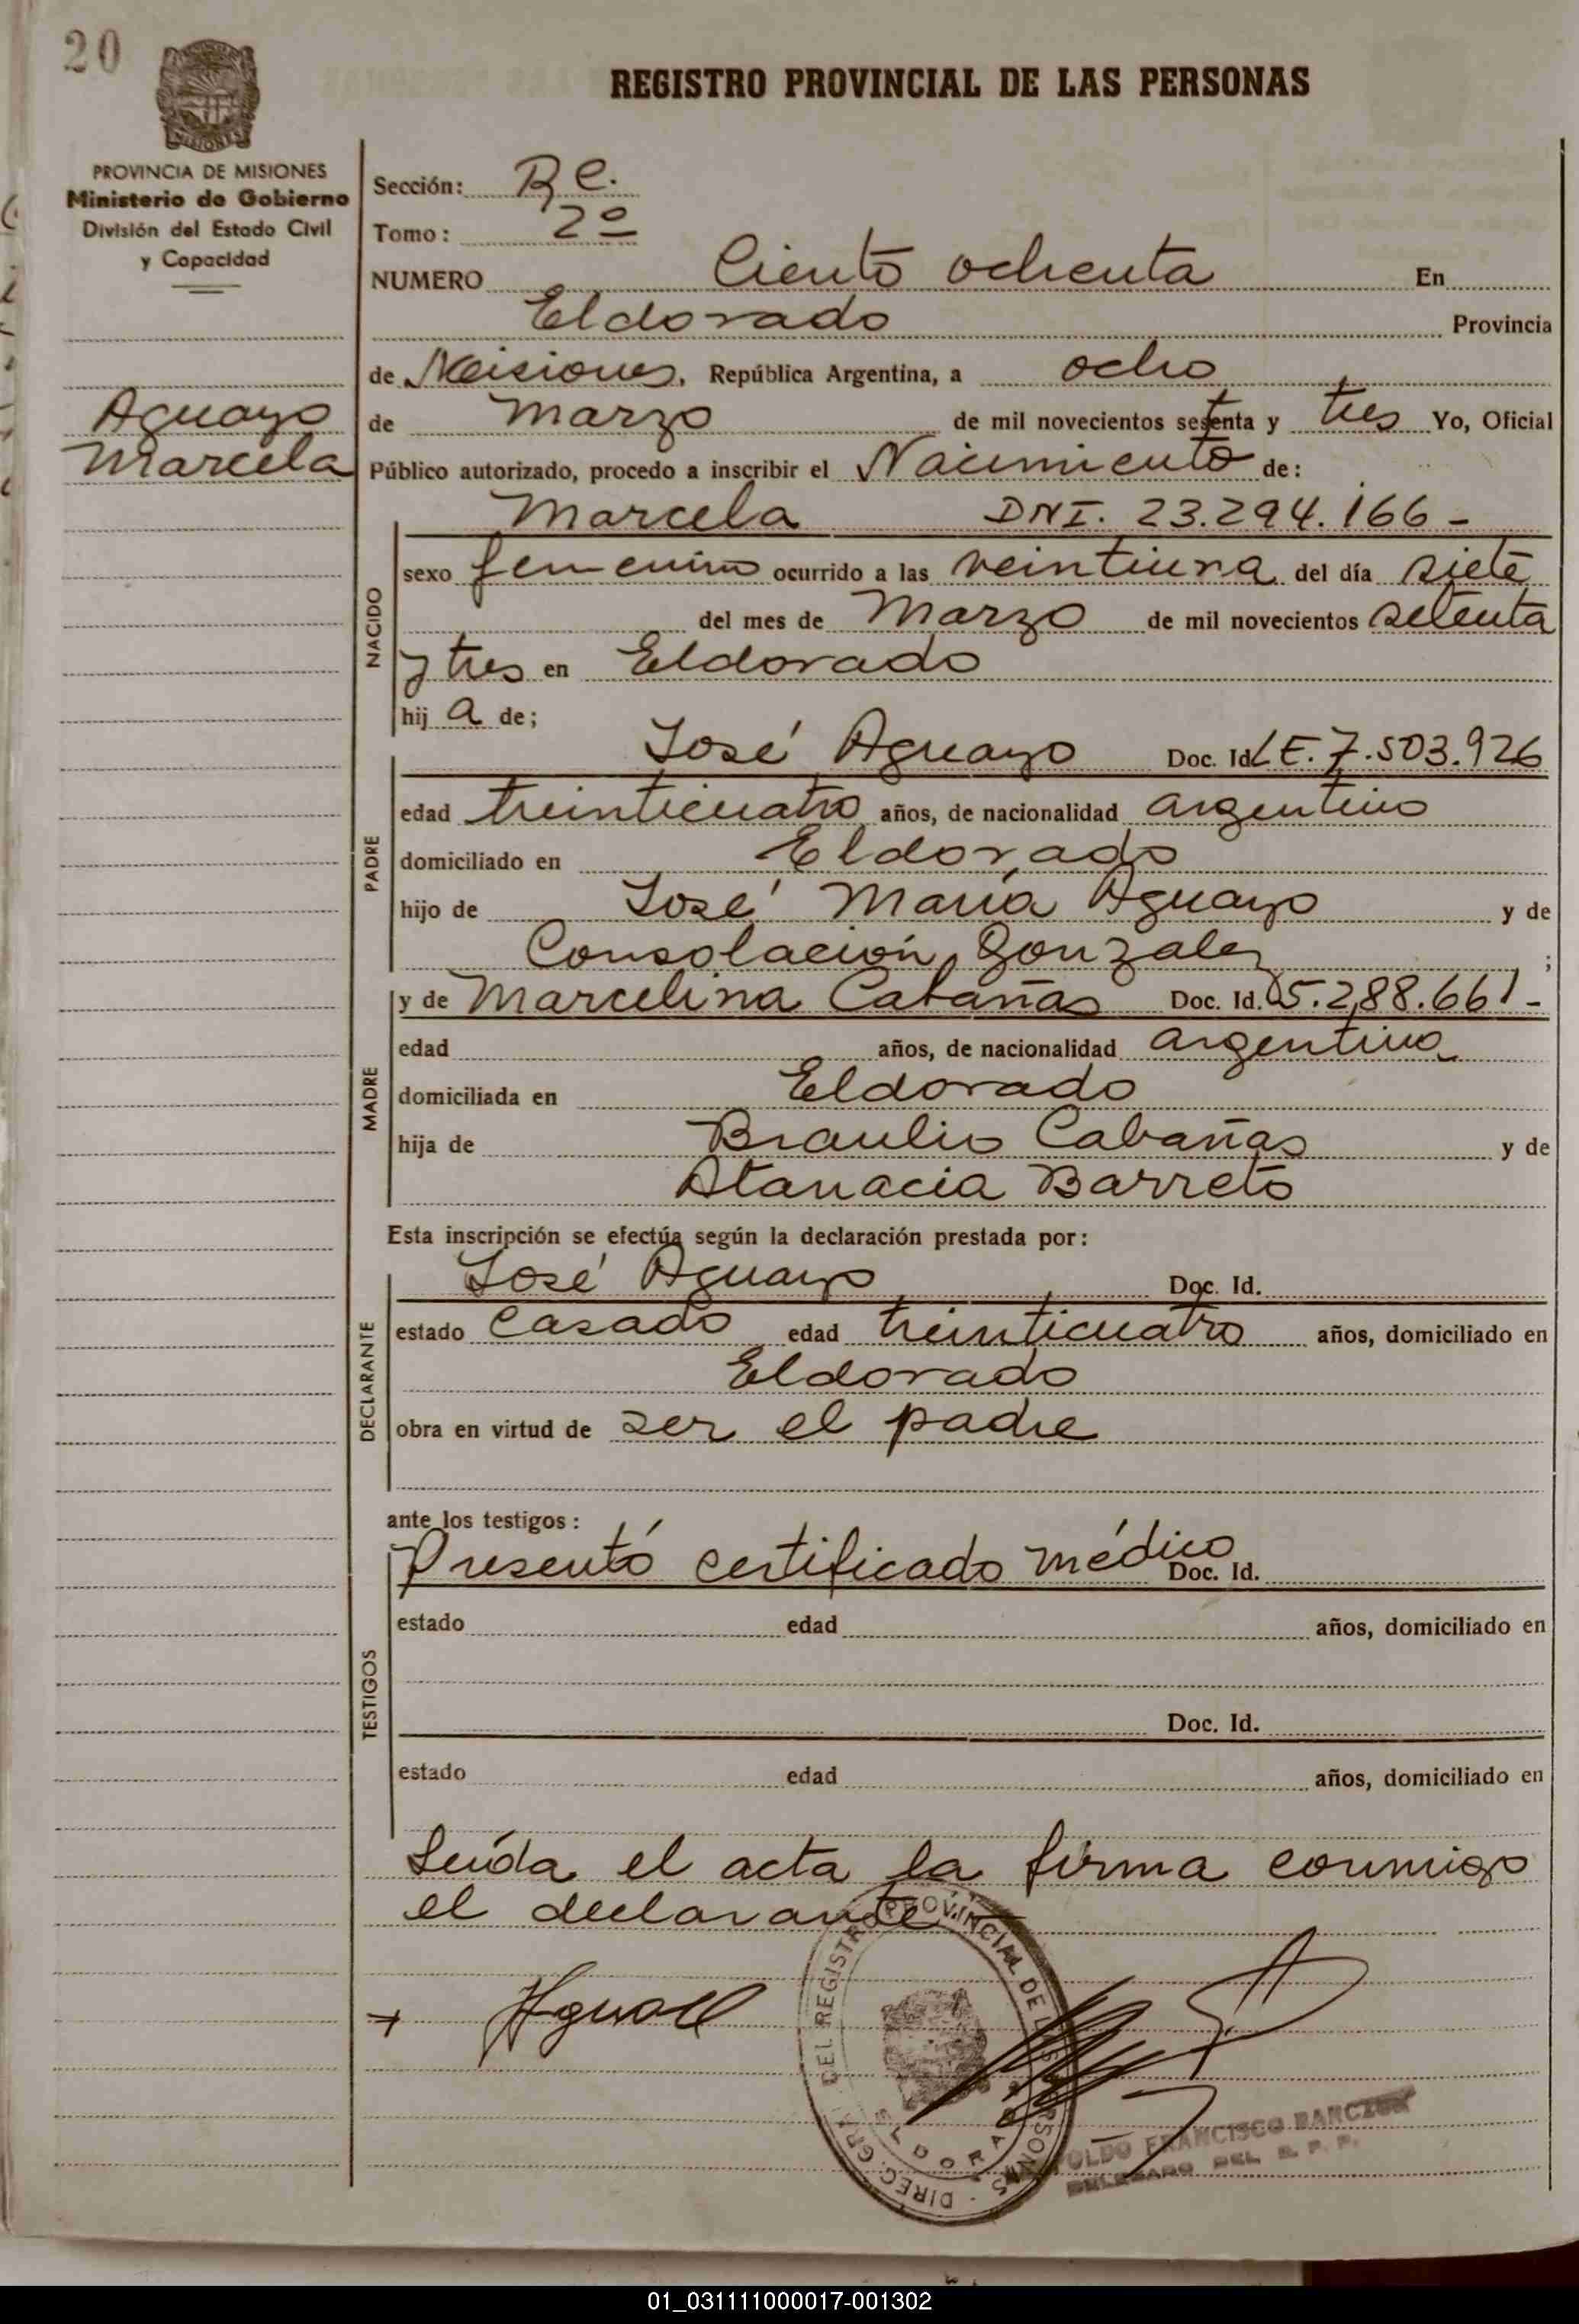 20
MISIONES
PROVINCIA DE MISIONES
Ministerio de Gobierno
División del Estado Civil
y Capacidad
Aguayo
Marcela
REGISTRO PROVINCIAL DE LAS PERSONAS
Sección: Re.
Tomo: 2º
NUMERO Ciento ochenta En
Eldorado Provincia
de Misiones, República Argentina, a ocho
de Marzo de mil novecientos setenta y tres Yo, Oficial
Público autorizado, procedo a inscribir el Nacimiento de:
Marcela DNI. 23.294.166-
NACIDO
sexo femenino ocurrido a las veintiuna del día siete
del mes de Marzo de mil novecientos setenta
y tres en Eldorado
hij a de;
PADRE
José Aguayo Doc. Id. LE. 7.503.926
edad treinticuatro años, de nacionalidad argentino
domiciliado en Eldorado
hijo de José María Aguayo y de
Consolación Gonzalez ;
MADRE
y de Marcelina Cabañas Doc. Id. 5.288.661-
edad años, de nacionalidad argentina
domiciliada en Eldorado
hija de Braulio Cabañas y de
Atanacia Barreto
Esta inscripción se efectúa según la declaración prestada por:
DECLARANTE
José Aguayo Doc. Id.
estado casado edad treinticuatro años, domiciliado en
Eldorado
obra en virtud de ser el padre
ante los testigos:
TESTIGOS
Presentó certificado médico Doc. Id.
estado edad años, domiciliado en
Doc. Id.
estado edad años, domiciliado en
Leída el acta la firma conmigo
el declarante
DIREC. GRAL. DEL REGISTRO PROVINCIAL DE LAS PERSONAS
ELDORADO
FRANCISCO
DELEGADO DEL R. P. P.
01_031111000017-001302